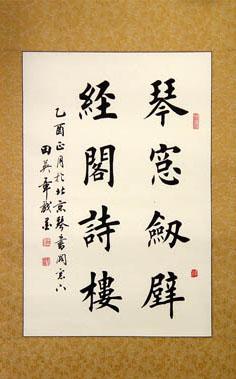 琴窓劔壁
經閣詩樓
乙酉正月於北京琴書閣窓下
田英章戲墨